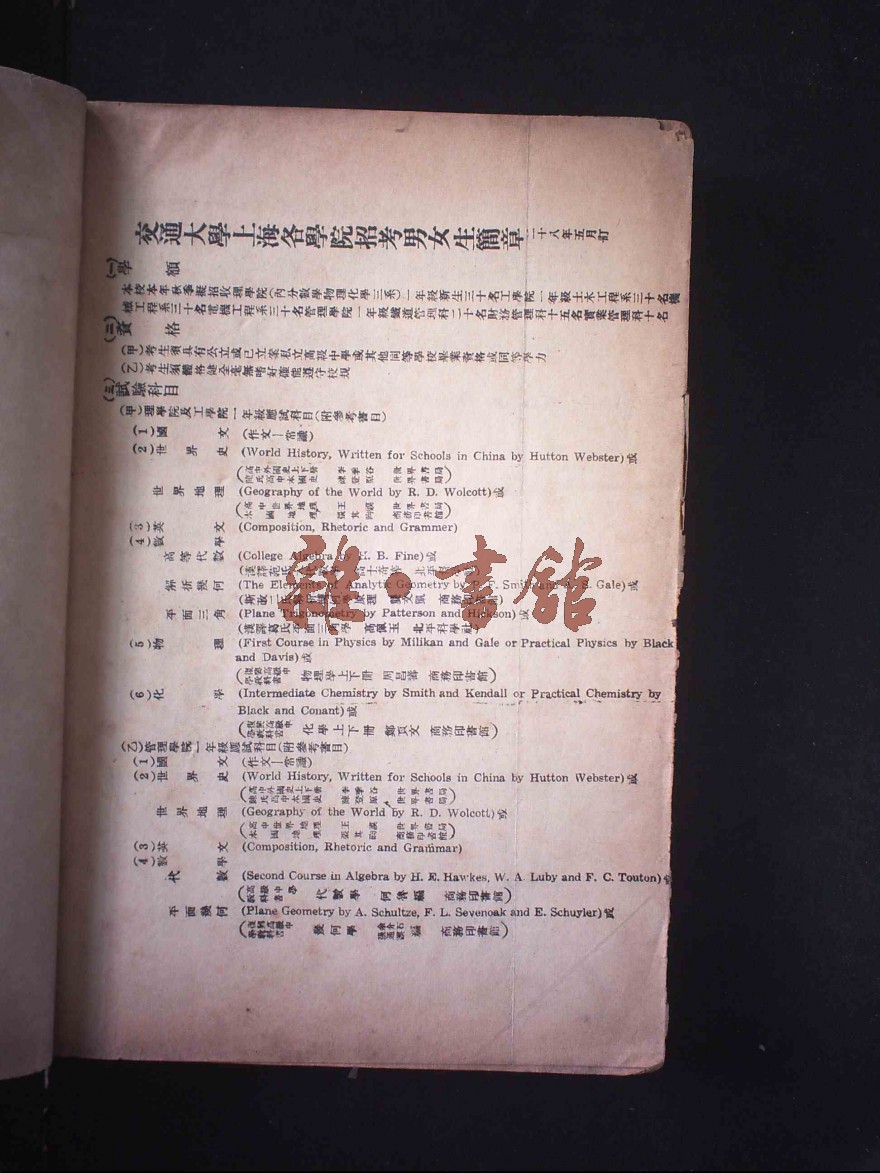 交通大學上海各學院招考男女生簡章 二十八年五月訂
(一)學額
本校本年秋季擬招收理學院(內分數學物理化學三系)一年級新生三十名工學院一年級土木工程系三十名機
械工程系三十名電機工程系三十名管理學院一年級鐵道管理科二十名財務管理科十五名實業管理科十名
(二)資格
(甲)考生須具有公立或已立案私立高級中學或其他同等學校畢業資格或同等學力
(乙)考生須體格健全無嗜好確能遵守校規
(三)試驗科目
(甲)理學院及工學院一年級應試科目(附參考書目)
(1)國文 (作文—常識)
(2)世界史 (World History, Written for Schools in China by Hutton Webster)或
(高中外國史上下冊 李季谷 世界書局
陳氏高中本國史 陳登原 世界書局)
世界地理 (Geography of the World by R. D. Wolcott)或
(高中世界地理 王謨 世界書局
本國地理 張其昀 商務印書館)
(3)英文 (Composition, Rhetoric and Grammer)
(4)數學
高等代數 (College Algebra by H. B. Fine)或
(漢譯范氏
解析幾何 (The Elements of Analytic Geometry by P. F. Smith and A. S. Gale)或
(斯改二氏解析幾何學原理 商務印書館)
平面三角 (Plane Trigonometry by Patterson and Hickson)或
(漢譯葛氏平面三角學 高佩玉 北平科學社)
(5)物理 (First Course in Physics by Milikan and Gale or Practical Physics by Black
and Davis)或
(復興高級中學教科書 物理學上下冊 周昌壽 商務印書館)
(6)化學 (Intermediate Chemistry by Smith and Kendall or Practical Chemistry by
Black and Conant)或
(復興高級中學教科書 化學上下冊 鄭貞文 商務印書館)
(乙)管理學院一年級應試科目(附參考書目)
(1)國文 (作文—常識)
(2)世界史 (World History, Written for Schools in China by Hutton Webster)或
(高中外國史上下冊 李季谷 世界書局
陳氏高中本國史 陳登原 世界書局)
世界地理 (Geography of the World by R. D. Wolcott)或
(高中世界地理 王謨 世界書局
本國地理 張其昀 商務印書館)
(3)英文 (Composition, Rhetoric and Grammar)
(4)數學
代數 (Second Course in Algebra by H. E. Hawkes, W. A. Luby and F. C. Touton)或
(高級中學教科書 代數學 何魯編 商務印書館)
平面幾何 (Plane Geometry by A. Schultze, F. L. Sevenoak and E. Schuyler)或
(復興高級中學教科書 幾何學 編 商務印書館)
雜·書館